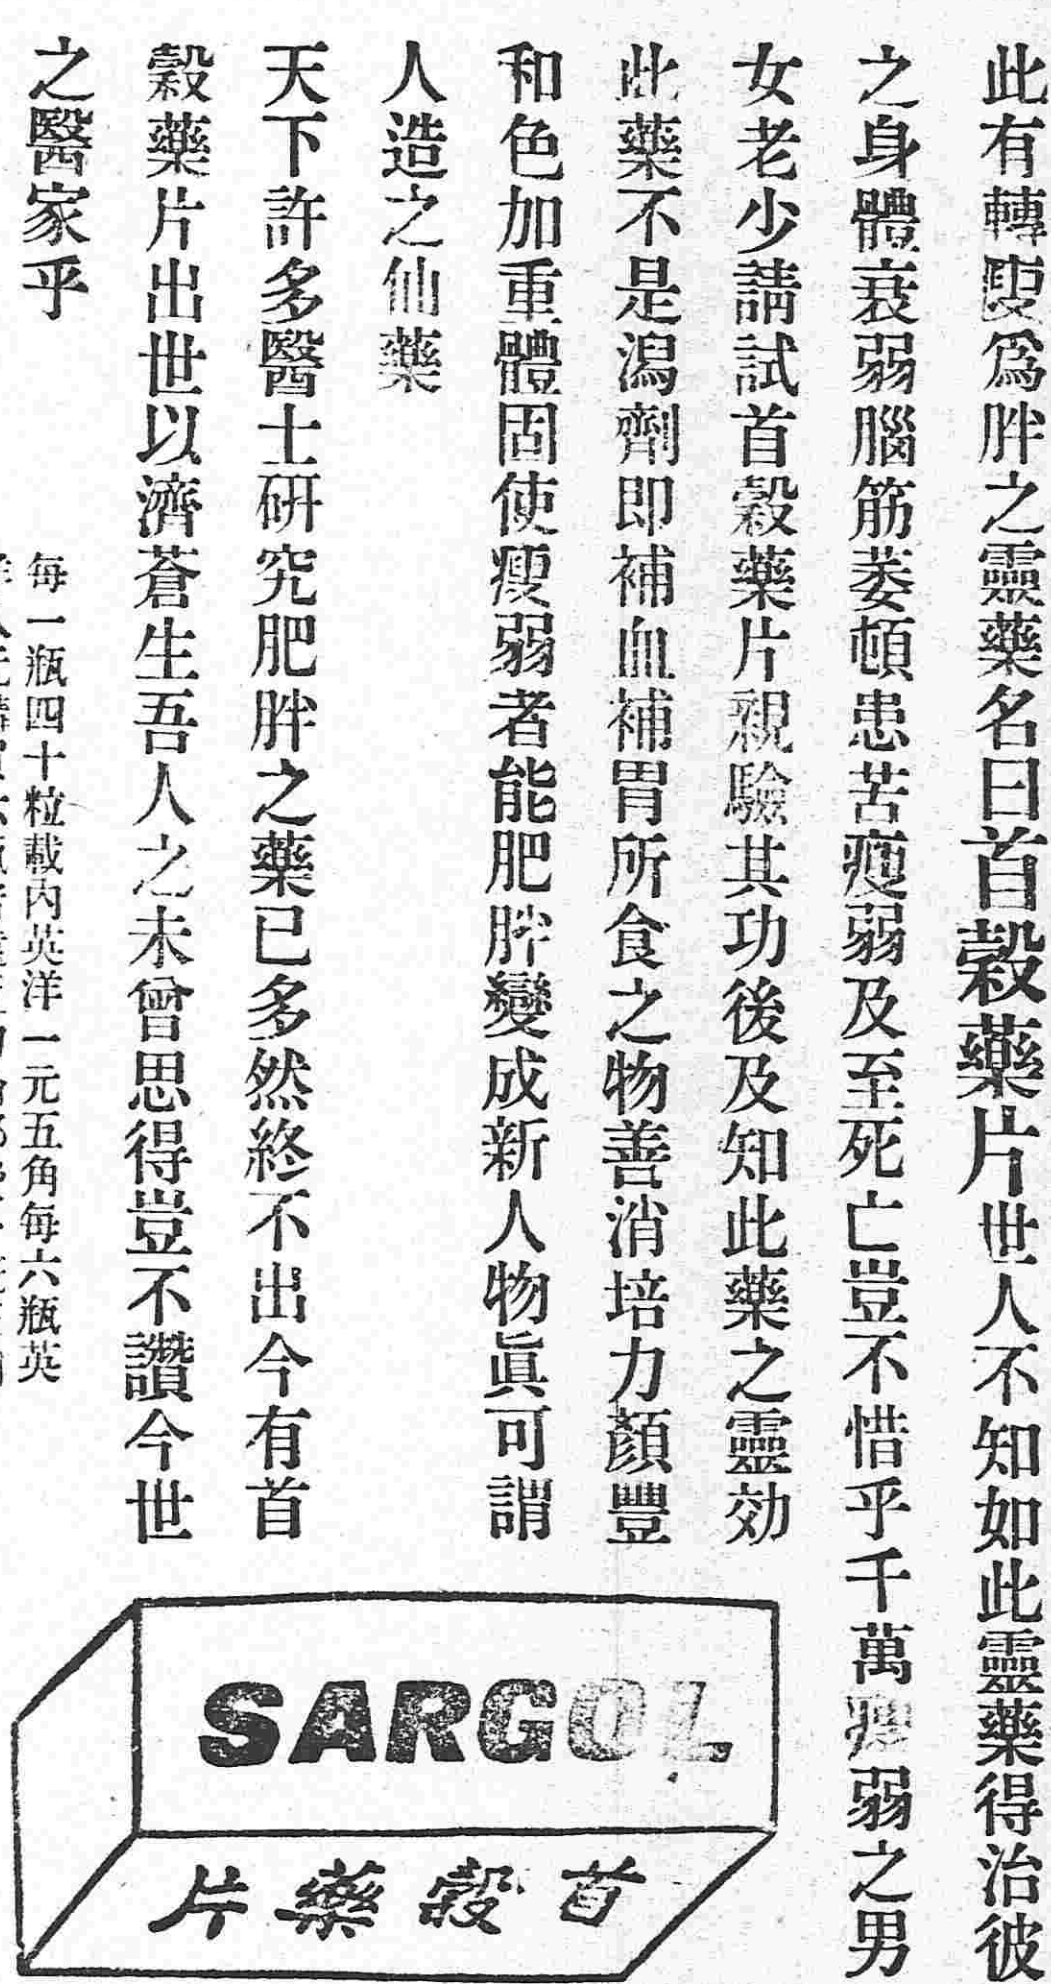 此有轉瘦爲胖之靈藥名曰首榖藥片世人不知如此靈藥得治彼
之身體衰弱腦筋萎頓患苦瘦弱及至死亡豈不惜乎千萬瘦弱之男
女老少請試首榖藥片親驗其功後及知此藥之靈効
此藥不是瀉劑即補血補胃所食之物善消培力顏豐
和色加重體固使瘦弱者能肥胖變成新人物眞可謂
人造之仙藥
天下許多醫士研究肥胖之藥已多然終不出今有首
榖藥片出世以濟蒼生吾人之未曾思得豈不讚今世
之醫家乎
每一瓶四十粒載內英洋一元五角每六瓶英
SARGOL
首榖藥片